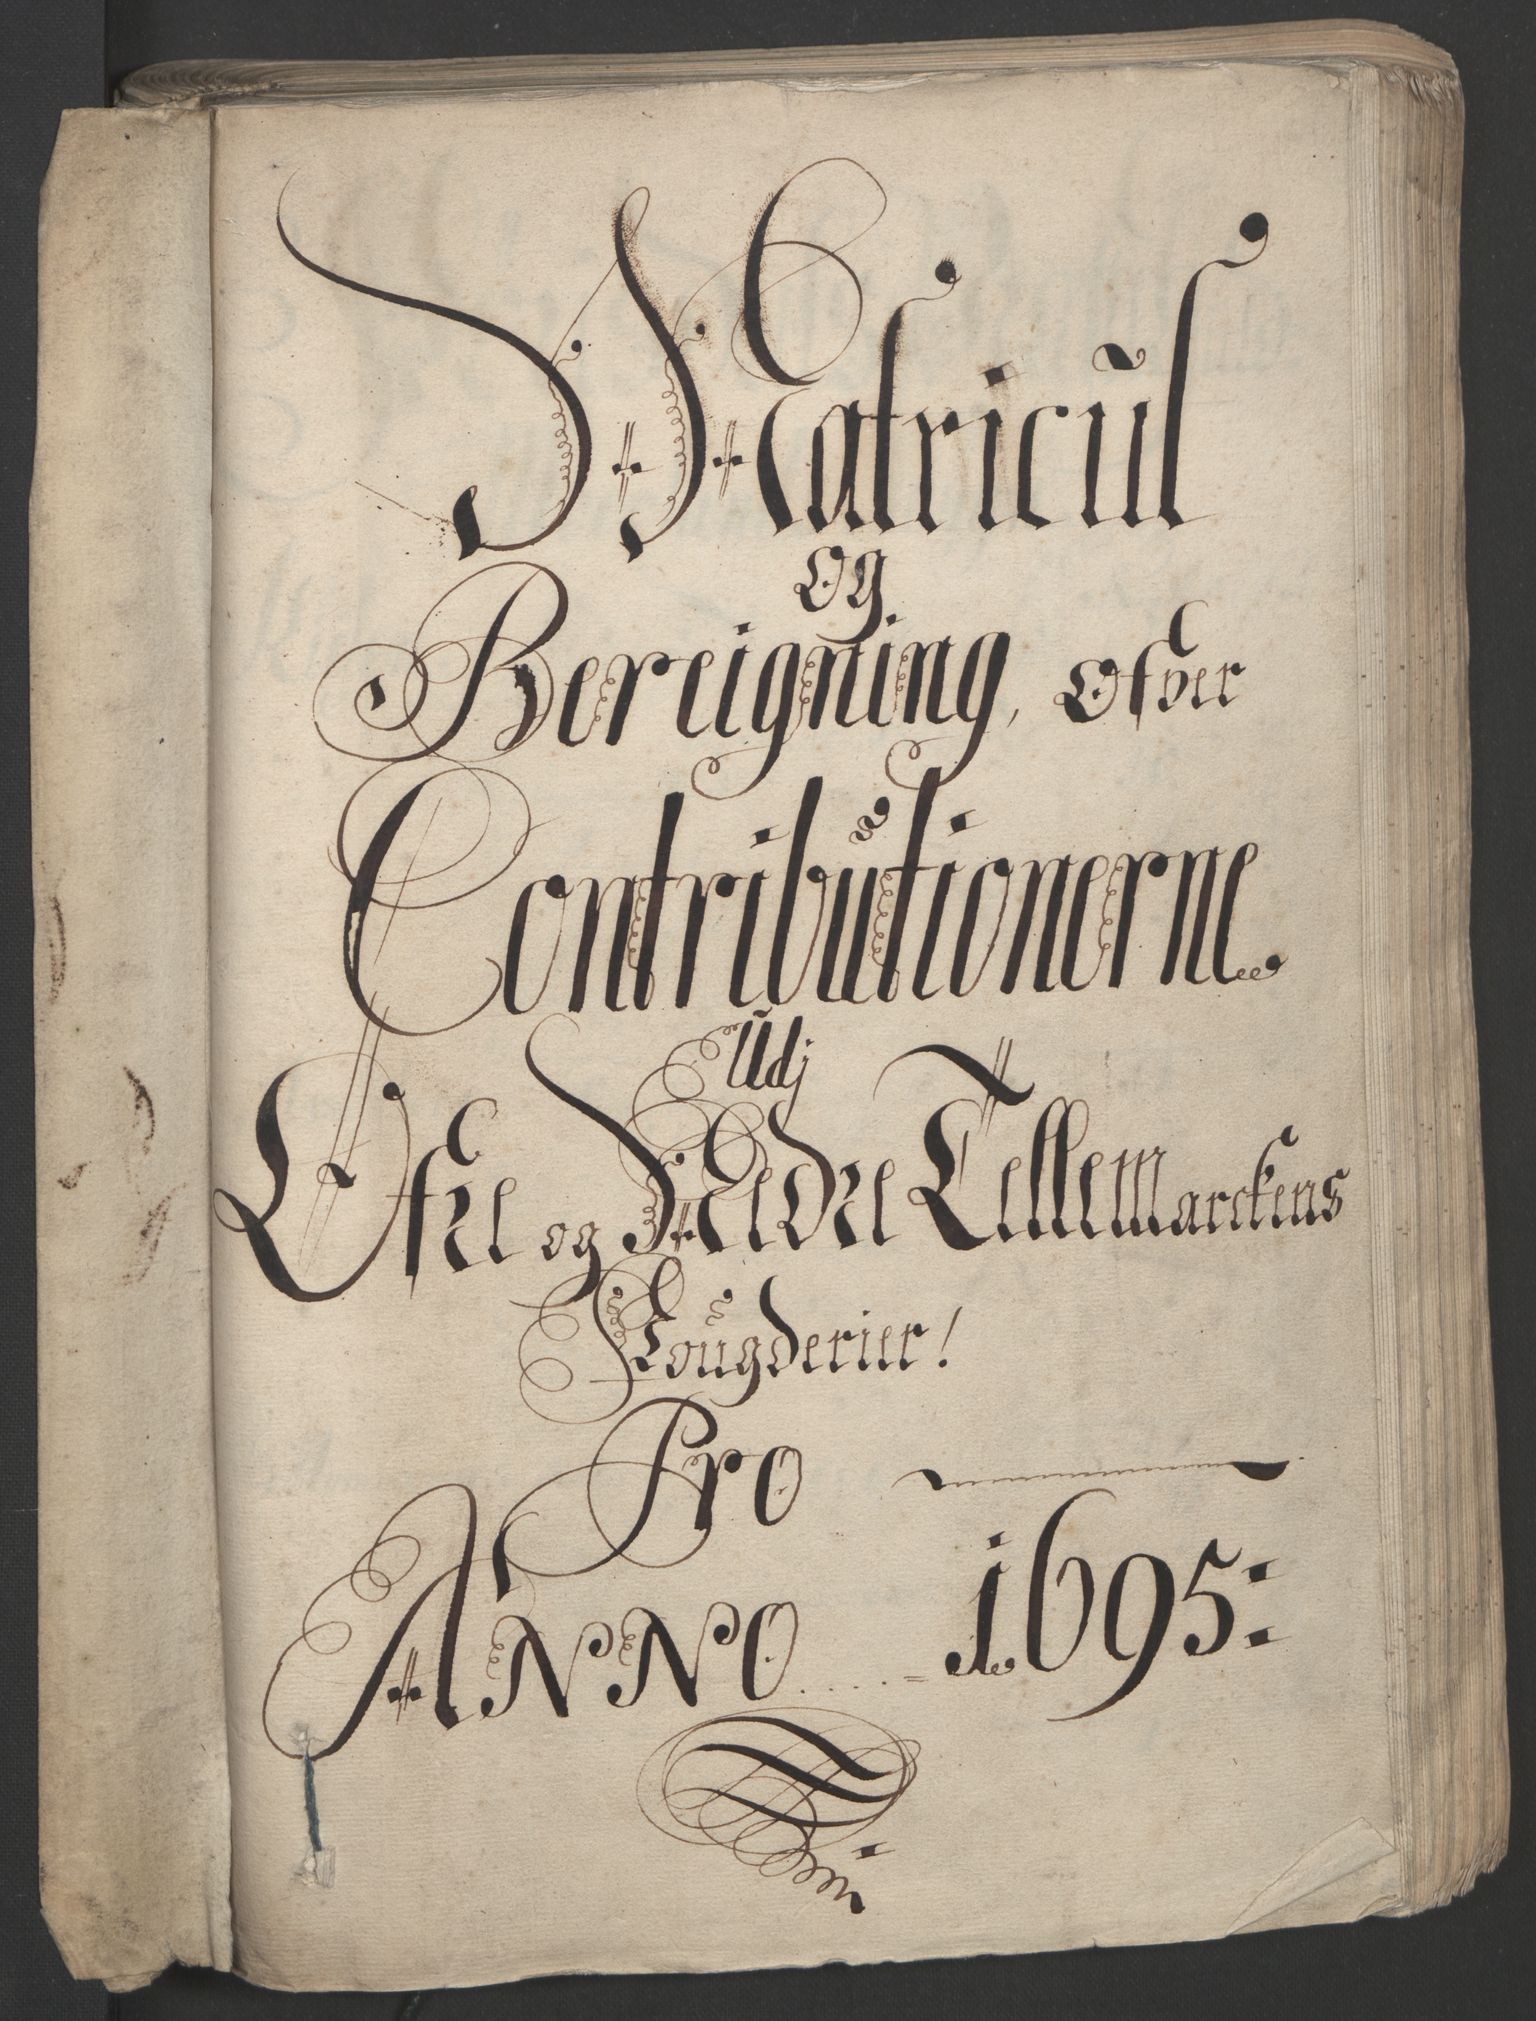 Matricul
og
Bereigning, Ofver
Contributionerne
Udj
Øfre og Nedre Tellemarckens
Fougderier!
Pro
ANNO ..... 1695: